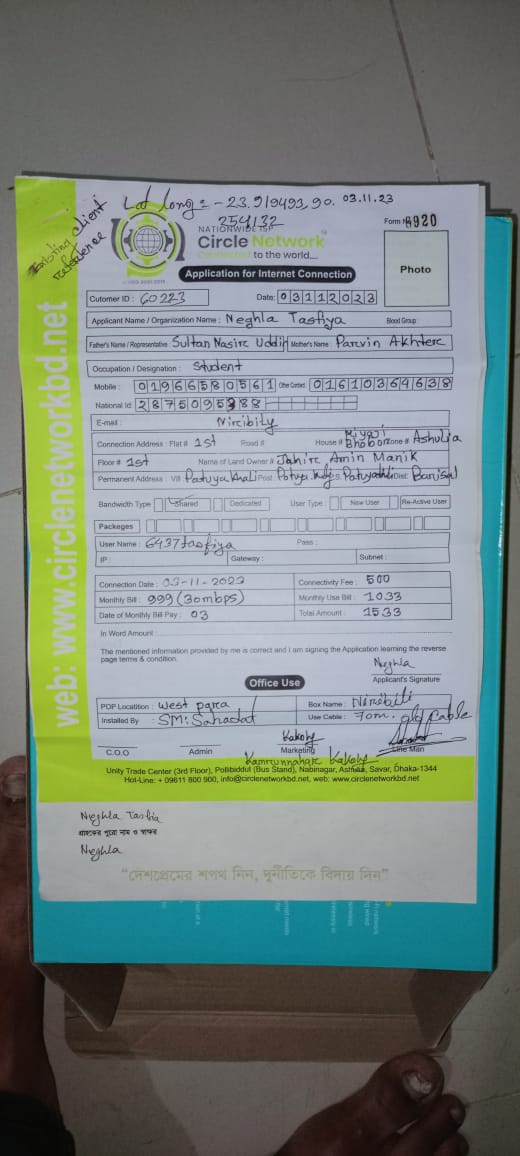 Lat long = - 23.919493, 90.
254132
03.11.23
Existing client reference
NATIONWIDE ISP
Circle Network
Connected to the world....
Form № 6920
Application for Internet Connection
Photo
Cutomer ID : 60223 Date: 03112023
Applicant Name / Organization Name : Neghla Tasfiya Blood Group:
Father's Name / Representative Sultan Nasirc Uddin Mother's Name Parvin Akhterc
Occupation / Designation : Student
Mobile : 01966580561 Other Contact : 01610369638
National Id: 2875095388
E-mail : Nircibily
Connection Address : Flat # 1st Road # House # Miyaji Bhobon Zone # Ashulia
Floor # 1st Name of Land Owner # Jahirc Amin Manik
Permanent Address : Vill Patuyakhali Post Patuyakhali Dist: Barisal
Bandwidth Type Shared Dedicated User Type : New User Re-Active User
Packeges
User Name : 6437tasfiya Pass :
IP : Gateway : Subnet :
Connection Date : 03-11-2023 Connectivity Fee : 500
Monthly Bill : 999 (30mbps) Monthly Use Bill : 1033
Date of Monthly Bill Pay : 03 Total Amount : 1533
In Word Amount :
The mentioned information provided by me is correct and i am signing the Application learning the reverse
page terms & condition.
Neghla
Applicant's Signature
Office Use
POP Locatition : West para Box Name : Niribili
Installed By : SM: Sahadat Use Cable : 70m. old Cable
Kakoly
C.O.O Admin Marketing Line Man
Kamrunnaharc Kakoly
Unity Trade Center (3rd Floor), Pollibiddut (Bus Stand), Nabinagar, Ashulia, Savar, Dhaka-1344
Hot-Line: + 09611 800 900, info@circlenetworkbd.net, web: www.circlenetworkbd.net
web: www.circlenetworkbd.net
Neghla Tasfia
গ্রাহকের পুরো নাম ও স্বাক্ষর
Neghla
“দেশপ্রেমের শপথ নিন, দুর্নীতিকে বিদায় দিন”